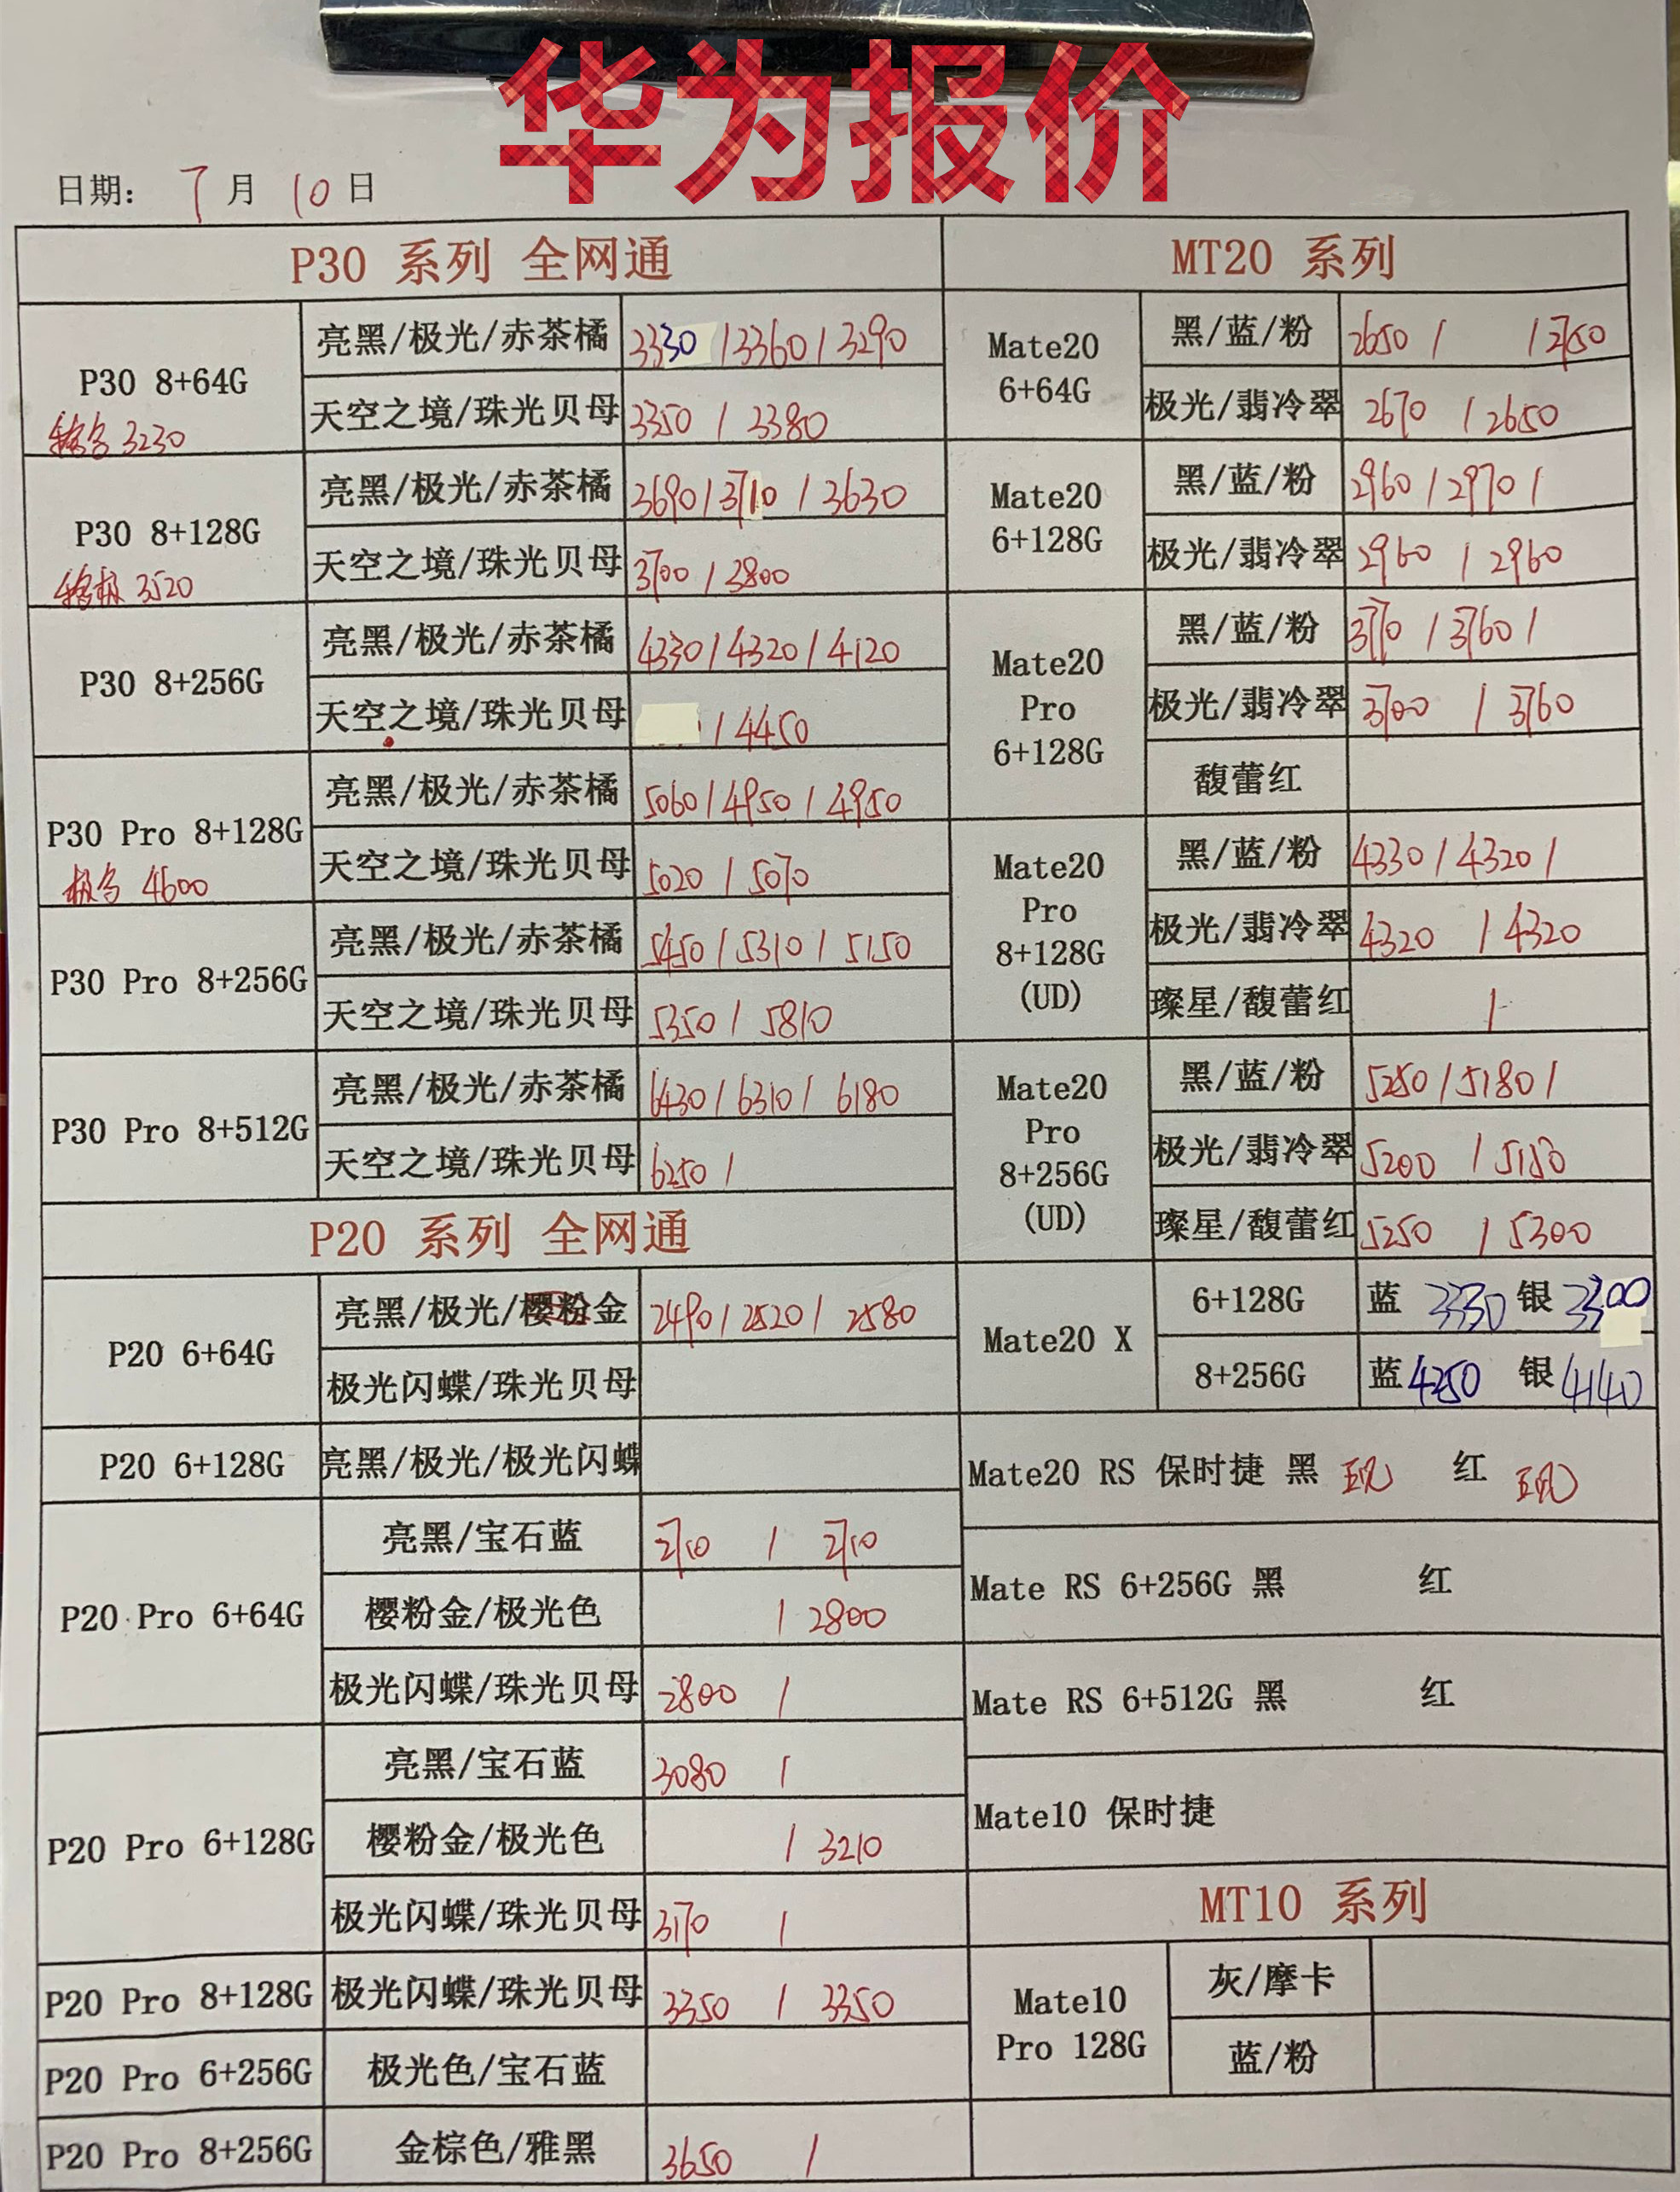 华为报价
日期: 7月10日
P30 系列 全网通
P30 8+64G
3230
亮黑/极光/赤茶橘 3330/3360/3290
天空之境/珠光贝母 3350/3380
P30 8+128G
3520
亮黑/极光/赤茶橘 3690/3710/3630
天空之境/珠光贝母 3700/3800
P30 8+256G
亮黑/极光/赤茶橘 4330/4320/4120
天空之境/珠光贝母 /4450
P30 Pro 8+128G
4600
亮黑/极光/赤茶橘 5060/4950/4950
天空之境/珠光贝母 5020/5070
P30 Pro 8+256G
亮黑/极光/赤茶橘 5450/5310/5150
天空之境/珠光贝母 5350/5810
P30 Pro 8+512G
亮黑/极光/赤茶橘 6430/6310/6180
天空之境/珠光贝母 6250/
P20 系列 全网通
P20 6+64G
亮黑/极光/樱粉金 2490/2520/2580
极光闪蝶/珠光贝母
P20 6+128G
亮黑/极光/极光闪蝶
P20 Pro 6+64G
亮黑/宝石蓝 2710/2710
樱粉金/极光色 /2800
极光闪蝶/珠光贝母 2800/
P20 Pro 6+128G
亮黑/宝石蓝 3080/
樱粉金/极光色 /3210
极光闪蝶/珠光贝母 3170/
P20 Pro 8+128G
极光闪蝶/珠光贝母 3350/3350
P20 Pro 6+256G
极光色/宝石蓝
P20 Pro 8+256G
金棕色/雅黑 3650/
MT20 系列
Mate20
6+64G
黑/蓝/粉 2650/ /2750
极光/翡冷翠 2670/2650
Mate20
6+128G
黑/蓝/粉 2960/2970/
极光/翡冷翠 2960/2960
Mate20
Pro
6+128G
黑/蓝/粉 3770/3760/
极光/翡冷翠 3700/3760
馥蕾红
Mate20
Pro
8+128G
(UD)
黑/蓝/粉 4330/4320/
极光/翡冷翠 4320/4320
璨星/馥蕾红 /
Mate20
Pro
8+256G
(UD)
黑/蓝/粉 5250/5180/
极光/翡冷翠 5200/5150
璨星/馥蕾红 5250/5300
Mate20 X
6+128G 蓝 3330 银 3300
8+256G 蓝 4250 银 4140
Mate20 RS 保时捷 黑 红
Mate RS 6+256G 黑 红
Mate RS 6+512G 黑 红
Mate10 保时捷
MT10 系列
Mate10
Pro 128G
灰/摩卡
蓝/粉